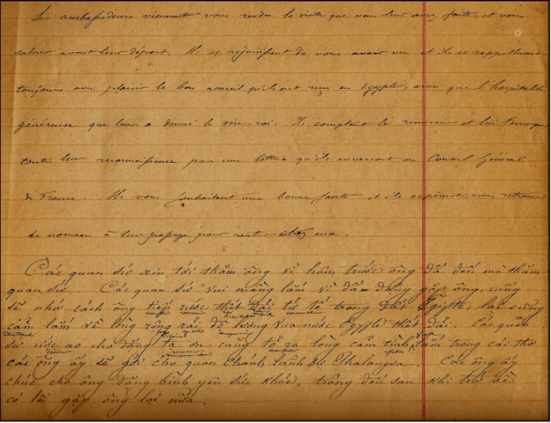 Les ambassadeurs viennent vous rendre la visite que vous leur avez faite, et vous
saluer avant leur départ. Ils se réjouissent de vous avoir vu et ils se rappelleront
toujours avec plaisir le bon accueil qu'ils ont reçu en Egypte, ainsi que l'hospitalité
généreuse que leur a donné le vice-roi. Ils comptent le remercier et lui témoigner
toute leur reconnaissance par une lettre qu'ils enverront au Consul Général
de France. Ils vous souhaitent une bonne santé et ils espèrent vous retrouver
de nouveau à leur passage pour rentrer chez eux.
Các quan sứ xin tới thăm ông vì hôm trước ông đã đến mà thăm
quan sứ. Các quan sứ vui mừng lắm vì đã đặng gặp ông, cũng
sẽ nhớ cách ông tiếp rước thật tử tế trong đất Egypte, lại cũng
cám lắm vì lòng rộng rãi vua nước Egypte thết đãi. Các quan
sứ ước ao cho đặng tạ ơn cùng tỏ ra lòng cám tình lắm trong cái thơ
các ông ấy sẽ gởi cho quan chánh lãnh sự Phalangsa. Các ông ấy
chúc cho ông đặng bình yên sức khỏe, trông đến sau khi trở về
có lẽ gặp ông lại nữa.